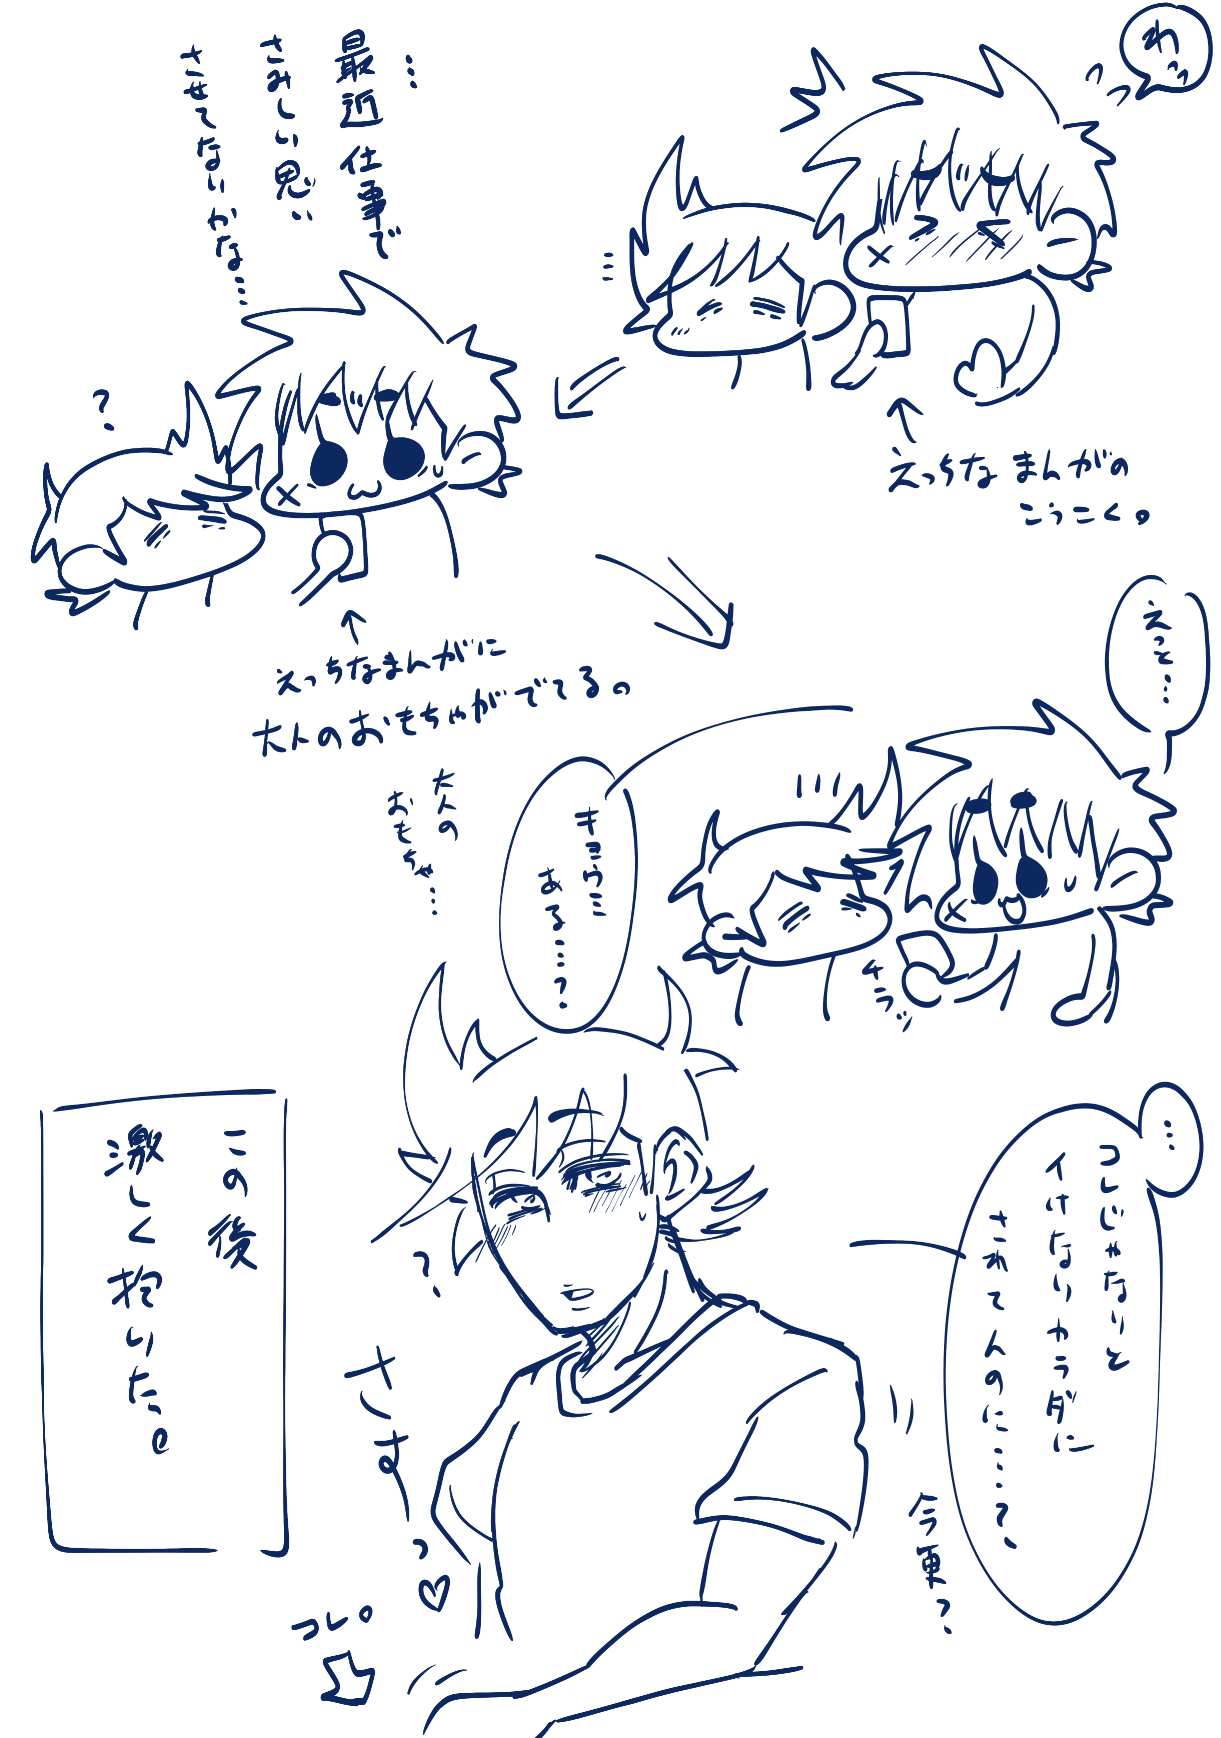 わっ
えっちな まんがの
こうこく。
…最近 仕事で
さみしい思い
させてないかな…
?
えっちなまんがに
大人のおもちゃがでてる。
えっと…
大人の
おもちゃ…
キョウミ
ある……?
チラッ
…
コレじゃないと
イけないカラダに
されてんのに……?
今更?
?
さすーっ♡
コレ。
この後
激しく抱いた。